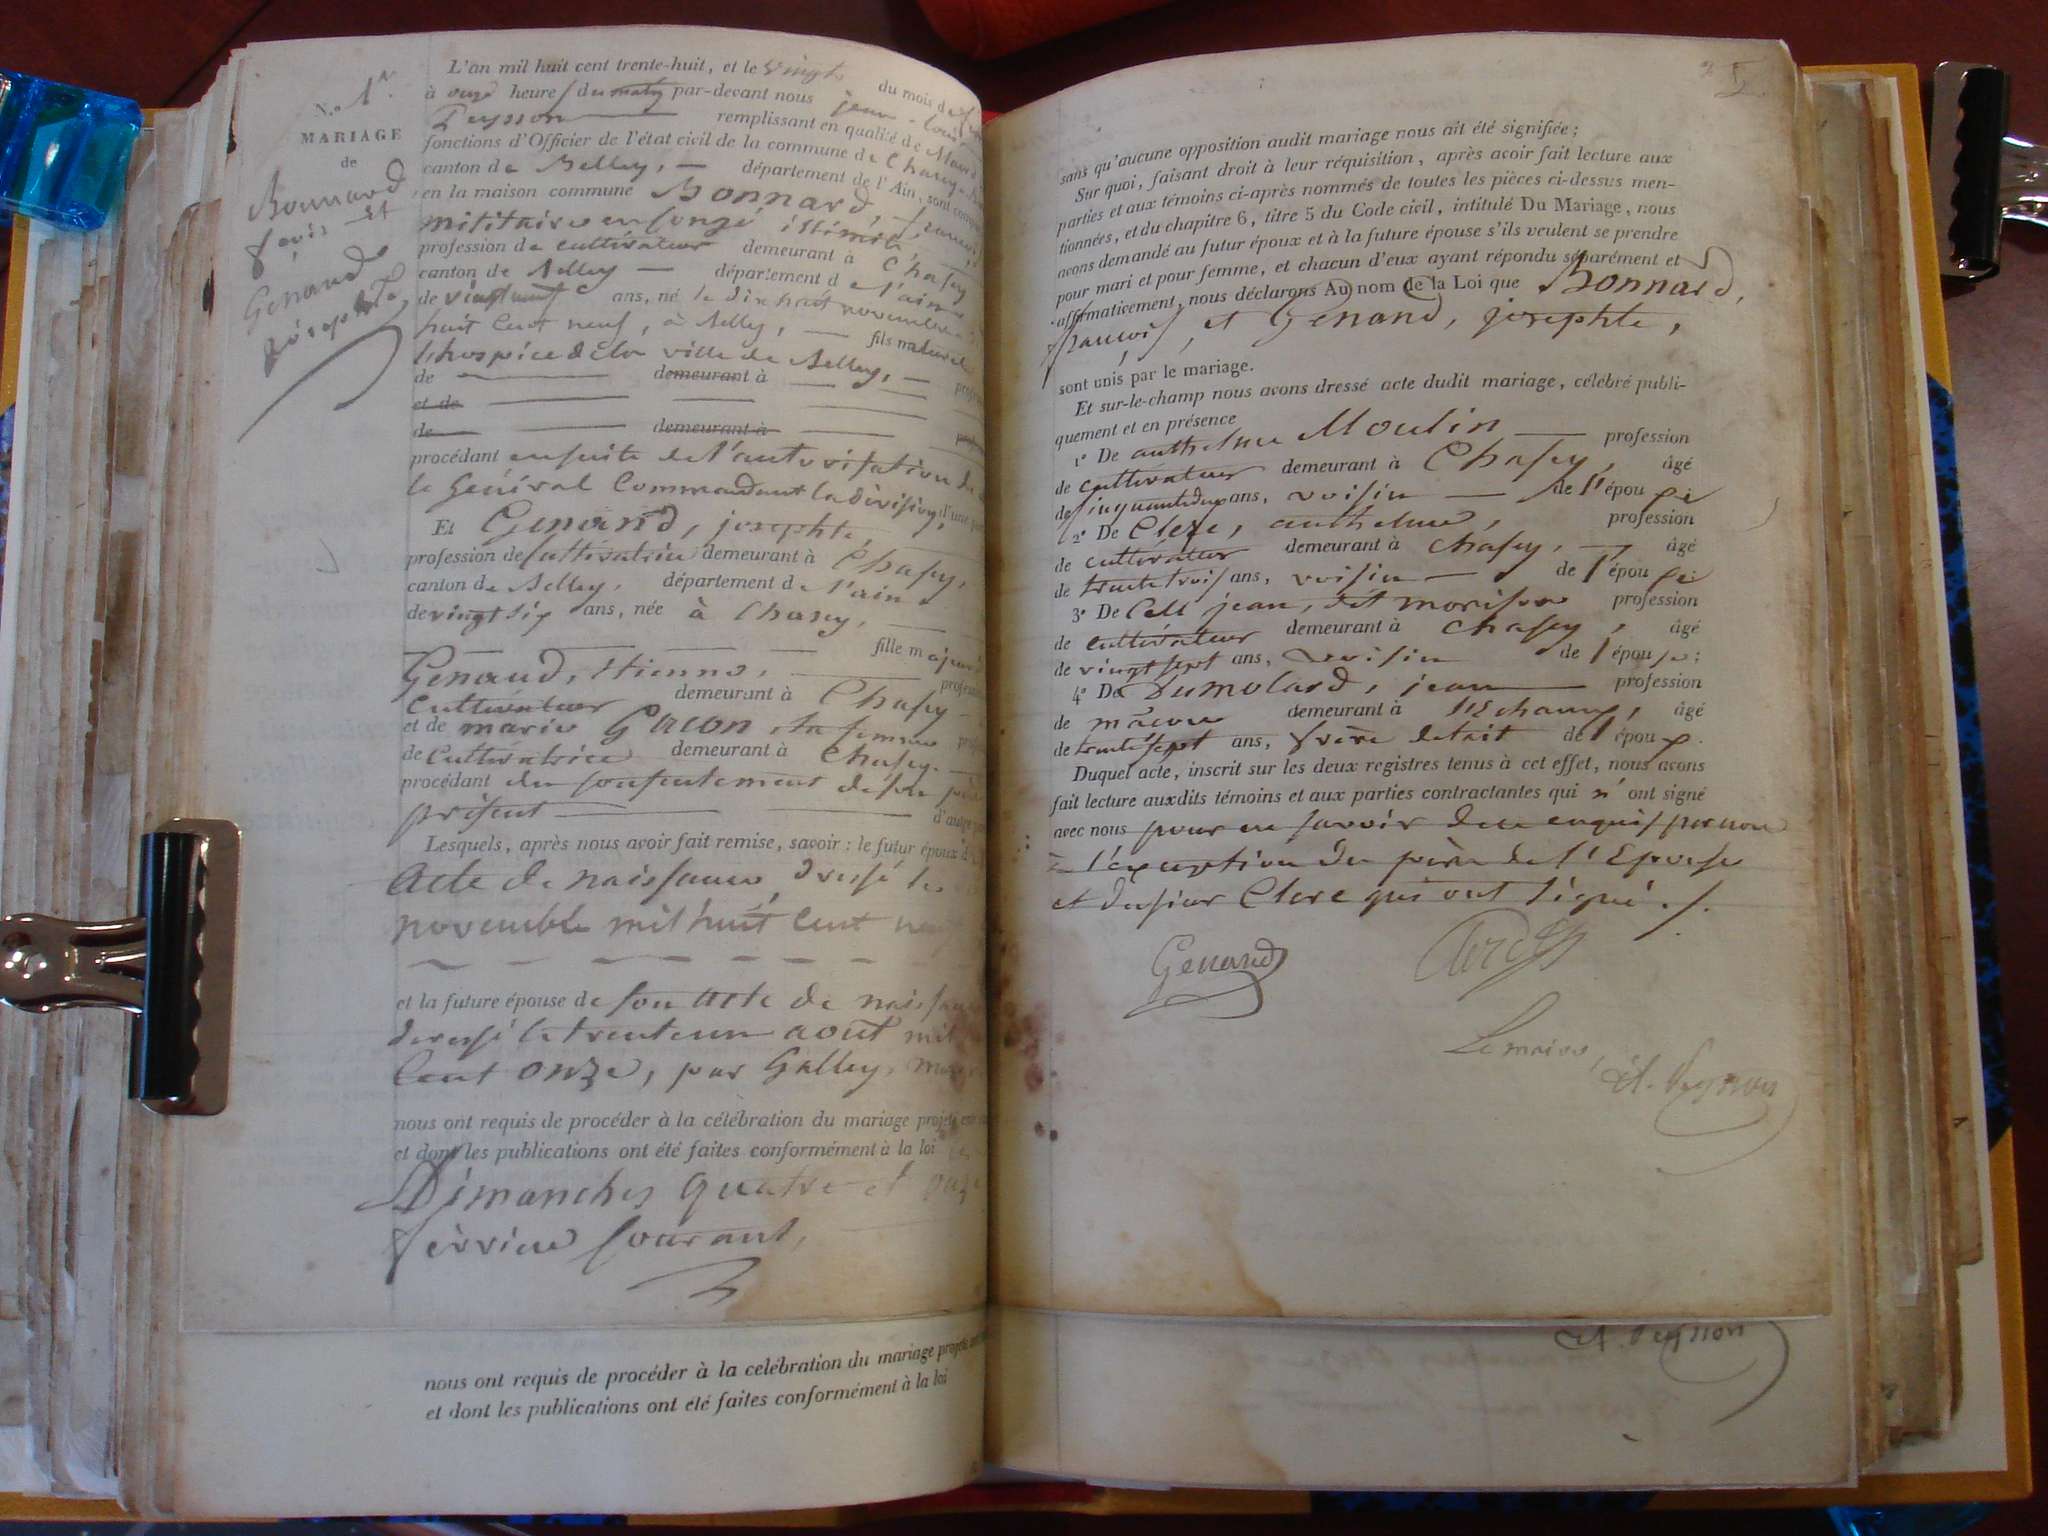 N.o 1er
MARIAGE
de
Bonnard
et
Genand
josephte
L'an mil huit cent trente-huit, et le vingt du mois de
à onze heures du matin par-devant nous jean-louis
Peysson remplissant en qualité de Maire
fonctions d'Officier de l'état civil de la commune de
canton de Belley, département de l'Ain, sont
en la maison commune Bonnard,
militaire en congé illimité
profession de cultivateur demeurant à Chasey
canton de Belley département de l'ain
de vingt huit ans, né le dix huit novembre
huit cent neuf, à Belley, fils naturel
l'hospice de la ville de Belley,
de demeurant à
et de
de demeurant à
procédant ensuite de l'autorisation de
le Général Commandant la division, d'une
Et Genand, josephte,
profession de cultivatrice demeurant à Chasey,
canton de Belley, département de l'ain
de vingt six ans, née à Chasey,
fille majeure
Genand, Etienne,
Cultivateur demeurant à Chasey
et de marie Gacon, sa femme
de Cultivatrice demeurant à Chasey
procédant du consentement de son père
présent d'autre
Lesquels, après nous avoir fait remise, savoir : le futur époux d
Acte de naissance dressé le
novembre mil huit cent neuf
et la future épouse de son acte de naissance
dressé le trente un août mil
cent onze, par Galley,
nous ont requis de procéder à la célébration du mariage projeté
et dont les publications ont été faites conformément à la loi
Dimanches quatre et onze
février courant,
nous ont requis de procéder à la celébration du mariage projeté
et dont les publications ont été faites conformément à la loi
sans qu'aucune opposition audit mariage nous ait été signifiée ;
Sur quoi, faisant droit à leur réquisition, après avoir fait lecture aux
parties et aux témoins ci-après nommés de toutes les pièces ci-dessus men-
tionnées, et du chapitre 6, titre 5 du Code civil, intitulé Du Mariage, nous
avons demandé au futur époux et à la future épouse s'ils veulent se prendre
pour mari et pour femme, et chacun d'eux ayant répondu séparément et
affirmativement, nous déclarons Au nom de la Loi que Bonnard,
francois, et Genand, josephte,
sont unis par le mariage.
Et sur-le-champ nous avons dressé acte dudit mariage, célébré publi-
quement et en présence
1° De anthelme Moulin profession
de cultivateur demeurant à Chasey, âgé
de cinquante deux ans, voisin de l'épouse
2° De Clerc, anthelme, profession
de cultivateur demeurant à Chasey, âgé
de trente trois ans, voisin de l'épouse
3° De jean, dit profession
de cultivateur demeurant à Chasey, âgé
de vingt sept ans, voisin de l'épouse ;
4° De Dumolard, jean profession
de maçon demeurant à âgé
de trente sept ans, frère de lait de l'époux.
Duquel acte, inscrit sur les deux registres tenus à cet effet, nous avons
fait lecture auxdits témoins et aux parties contractantes qui n'ont signé
avec nous pour ne savoir de ce enquis par nous
à l'exception du père de l'Epouse
et du sieur Clerc qui ont signé ./.
Genand
Clerc
Le maire,
Peysson
Peysson